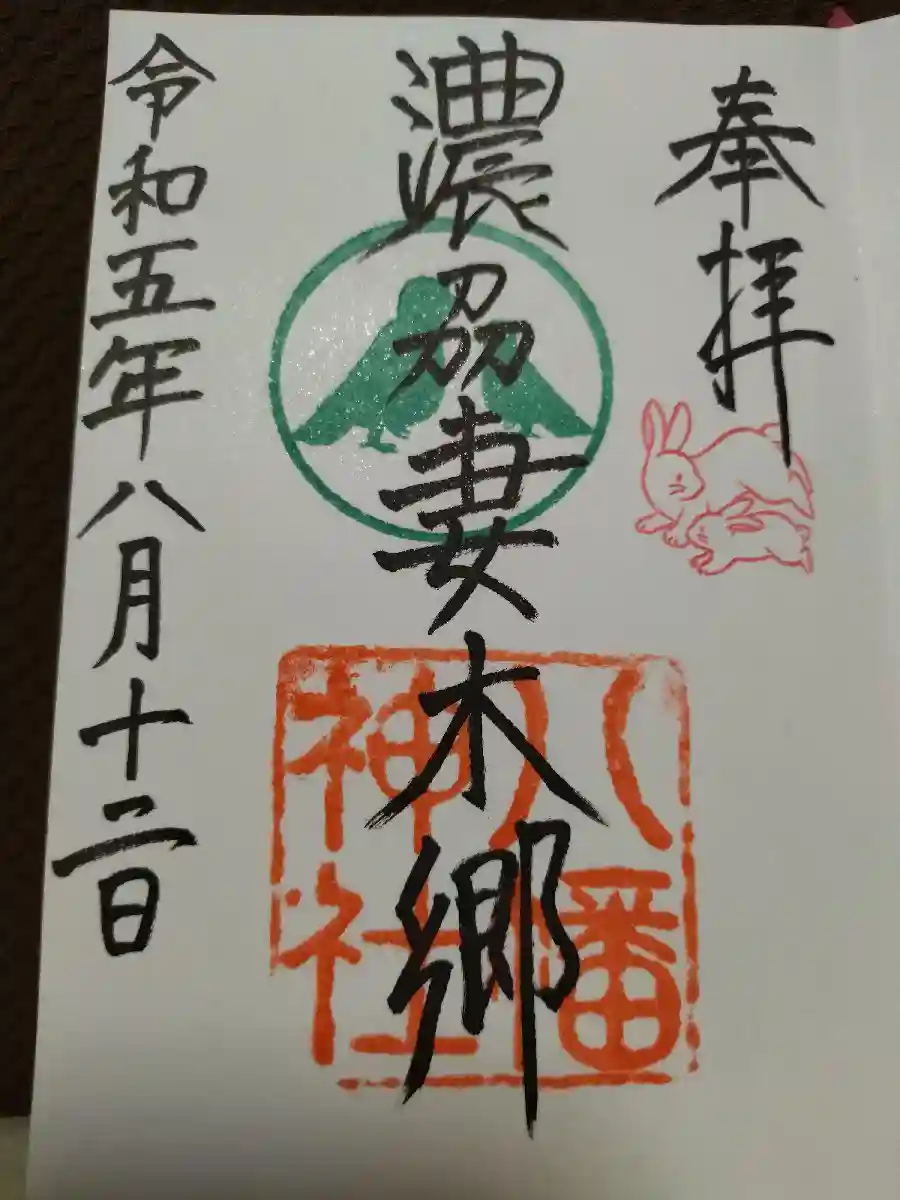 奉拝
濃刕妻木郷
八幡
神社
令和五年八月十二日